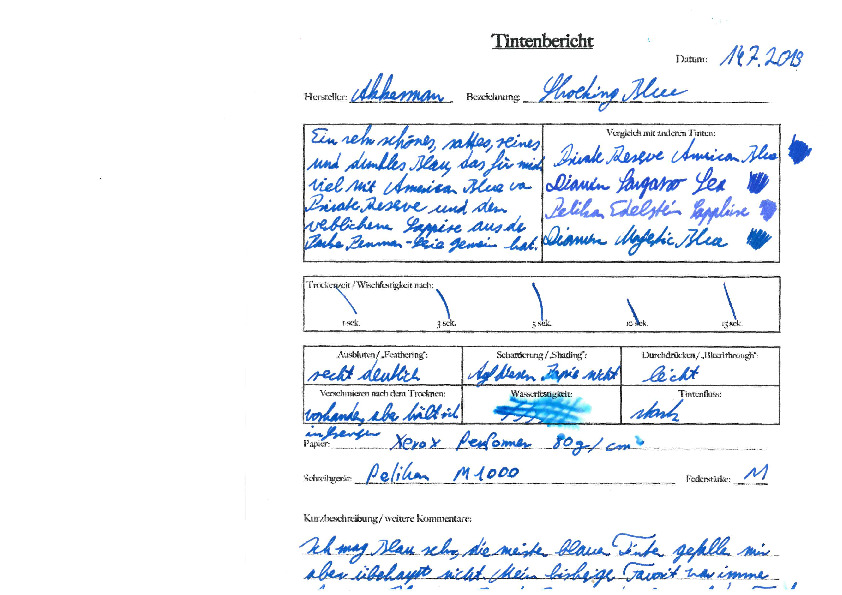 Tintenbericht
Datum: 14.7.2013
Hersteller: Akkerman Bezeichnung: Shocking Blue
Ein sehr schönes, sattes, reines
und dunkles Blau, das für mich
viel mit American Blue von
Private Reserve und dem
Sapphire aus der
gemein hat.
Vergleich mit anderen Tinten:
Private Reserve American Blue
Diamin Sargasso Sea
Pelikan Edelstein Sapphire
Diamin Majestic Blue
Trockenzeit / Wischfestigkeit nach:
1 sek. 3 sek. 5 sek. 10 sek. 15 sek.
Ausbluten / „Feathering":
recht deutlich
Schattierung / „Shading":
Auf diesem Papier nicht
Durchdrücken / „Bleedthrough":
leicht
Verschmieren nach dem Trocknen:
vorhanden, aber hält sich
in Grenzen
Wasserfestigkeit:
Tintenfluss:
stark
Papier: Xerox Performer 80g/cm²
Schreibgerät: Pelikan M1000 Federstärke: M
Kurzbeschreibung / weitere Kommentare:
Ich mag Blau sehr, die meisten blauen Tinten gefallen mir
aber überhaupt nicht. Mein bisheriger Favorit war immer